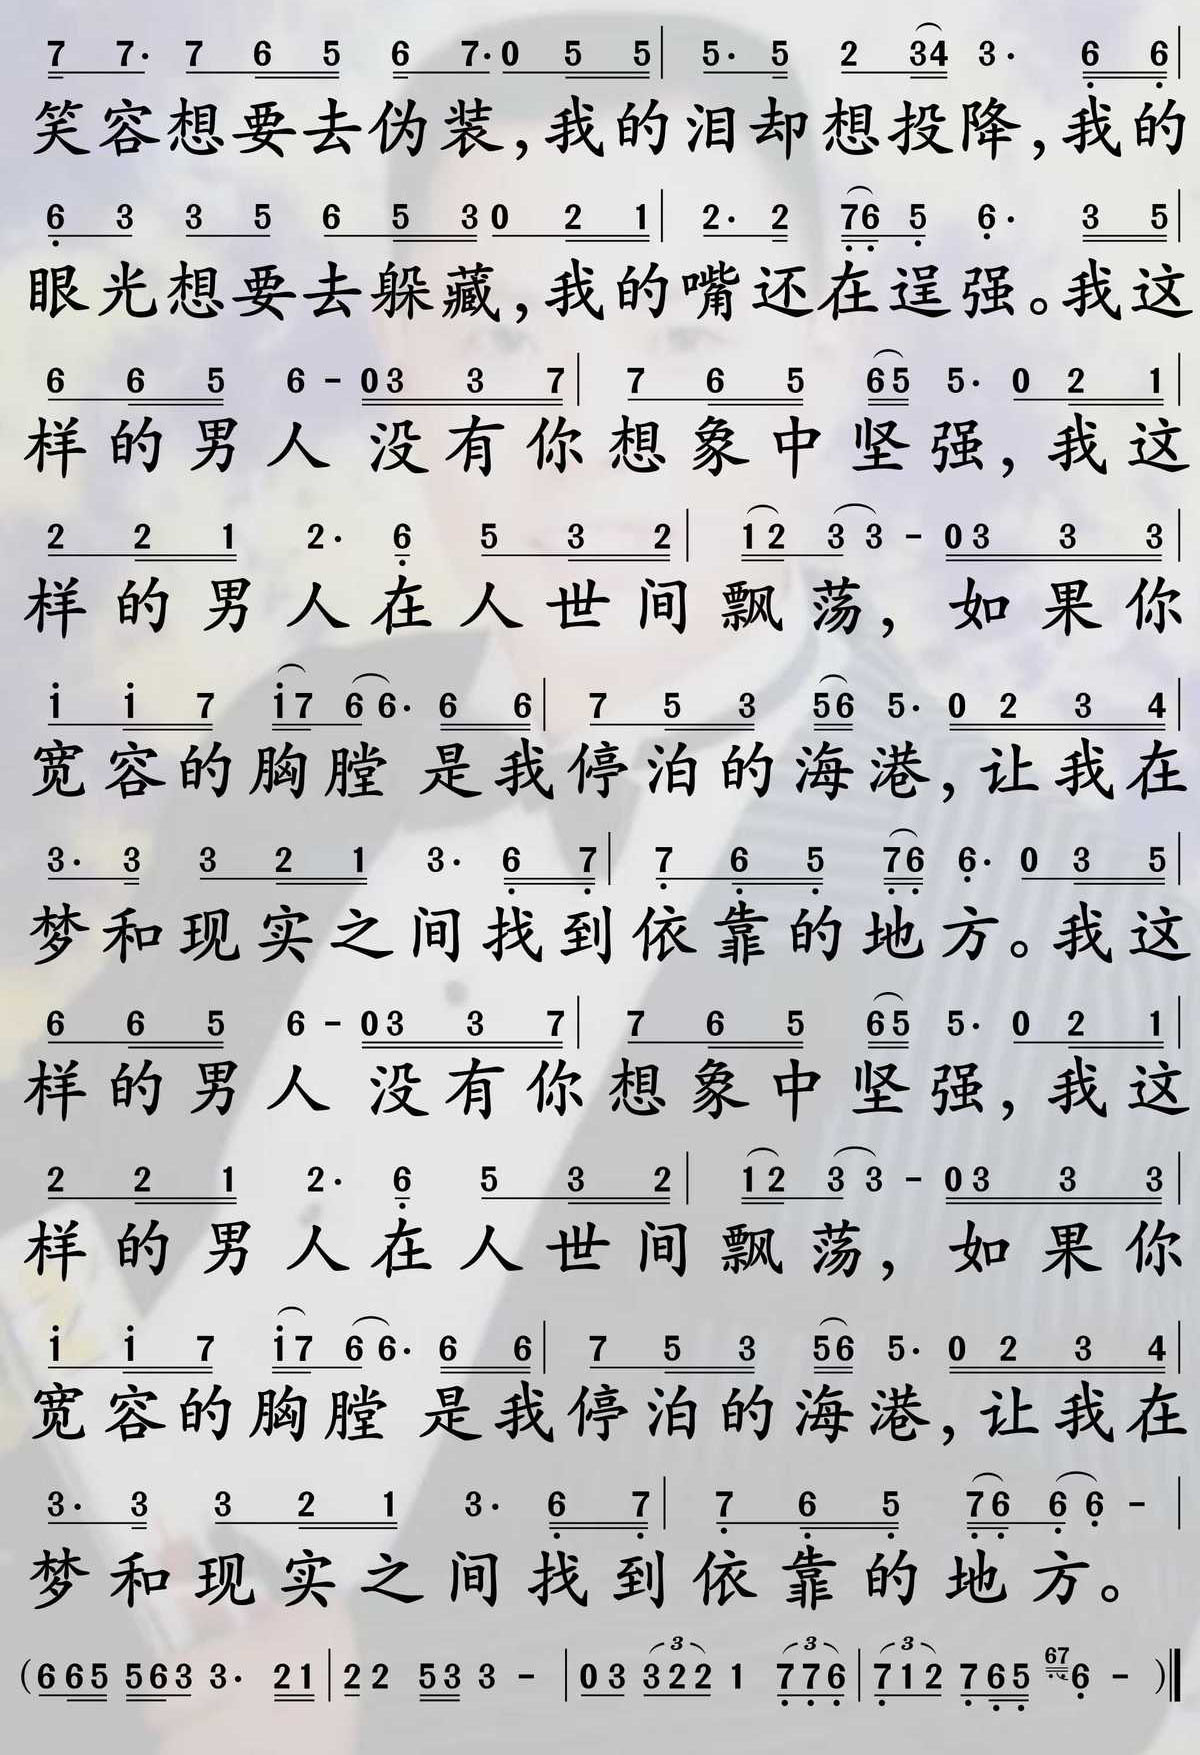 7 7· 7 6 5 6 7· 0 5 5 | 5· 5 2 34 3· 6 6 |
笑容想要去伪装,我的泪却想投降,我的
6 3 3 5 6 5 3 0 2 1 | 2· 2 76 5 6· 3 5 |
眼光想要去躲藏,我的嘴还在逞强。我这
6 6 5 6 - 03 3 7 | 7 6 5 65 5· 0 2 1 |
样的男人 没有你想象中坚强,我这
2 2 1 2· 6 5 3 2 | 12 3 3 - 03 3 3 |
样的男人在人世间飘荡,如果你
i i 7 i7 6 6· 6 6 | 7 5 3 56 5· 0 2 3 4 |
宽容的胸膛 是我停泊的海港,让我在
3· 3 3 2 1 3· 6 7 | 7 6 5 76 6· 0 3 5 |
梦和现实之间找到依靠的地方。我这
6 6 5 6 - 03 3 7 | 7 6 5 65 5· 0 2 1 |
样的男人 没有你想象中坚强,我这
2 2 1 2· 6 5 3 2 | 12 3 3 - 03 3 3 |
样的男人在人世间飘荡,如果你
i i 7 i7 6 6· 6 6 | 7 5 3 56 5· 0 2 3 4 |
宽容的胸膛 是我停泊的海港,让我在
3· 3 3 2 1 3· 6 7 | 7 6 5 76 6 6 - |
梦和现实之间找到依靠的地方。
(665 563 3· 21 | 22 53 3 - | 03 322 1 776 | 712 765 67 6 - )‖